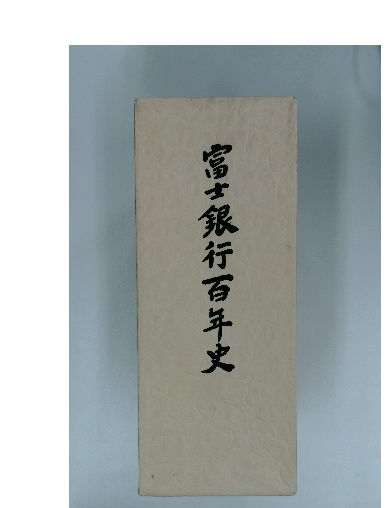 富士銀行百年史